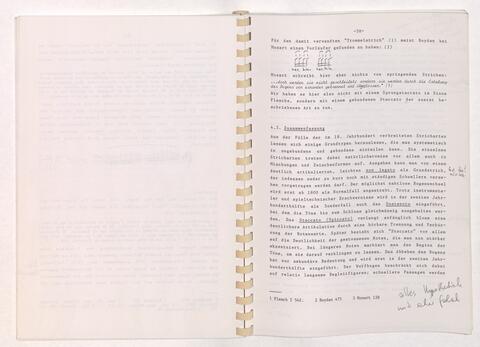 -70-
Für den damit verwandten "Trommelstrich" (1) meint Boyden bei
Mozart einen Vorläufer gefunden zu haben: (2)
Mozart schreibt hier aber nichts von springenden Strichen:
Wir haben es hier also nicht mit einem Sprungstaccato im Sinne
Fleschs, sondern mit einem gebundenen Staccato der zuerst be-
schriebenen Art zu tun.
4.5. Zusammenfassung
Aus der Fülle der im 18. Jahrhundert verbreiteten Stricharten
lassen sich einige Grundtypen herauslesen, die man systematisch
in ungebundene und gebundene einteilen kann. Die einzelnen
Stricharten treten dabei natürlicherweise vor allem auch in
Mischungen und Zwischenformen auf. Ausgehen kann man von einem
deutlich artikulierten, leichten non legato als Grundstrich,
der indessen weder zu kurz noch mit ständigem Schwellen verse-
hen vorgetragen werden darf. Der möglichst nahtlose Bogenwechsel
wird erst ab 1800 als Normalfall angestrebt. Trotz instrumenta-
ler und spieltechnischer Erschwernisse wird in der zweiten Jahr-
hunderthälfte als Sonderfall auch das Sostenuto eingeführt,
bei dem die Töne bis zum Schluss gleichmässig ausgehalten wer-
den. Das Staccato (Spiccato) verlangt anfänglich bloss eine
deutlichere Artikulation durch eine hörbare Trennung und Verkür-
zung der Notenwerte. Später bezieht sich "Staccato" vor allem
auf die Deutlichkeit der gestossenen Noten, die man nun stärker
akzentuiert. Bei längeren Noten markiert man den Beginn des
Tons, um sie darauf verklingen zu lassen. Das Abheben des Bogens
hat nur sekundäre Bedeutung und wird erst in der zweiten Jahr-
hunderthälfte eingeführt. Der Wurfbogen beschränkt sich dabei
auf relativ langsame Begleitfiguren; schnellere Passagen werden
1 Flesch I 54f. 2 Boyden 475 3 Mozart 128
alles
und